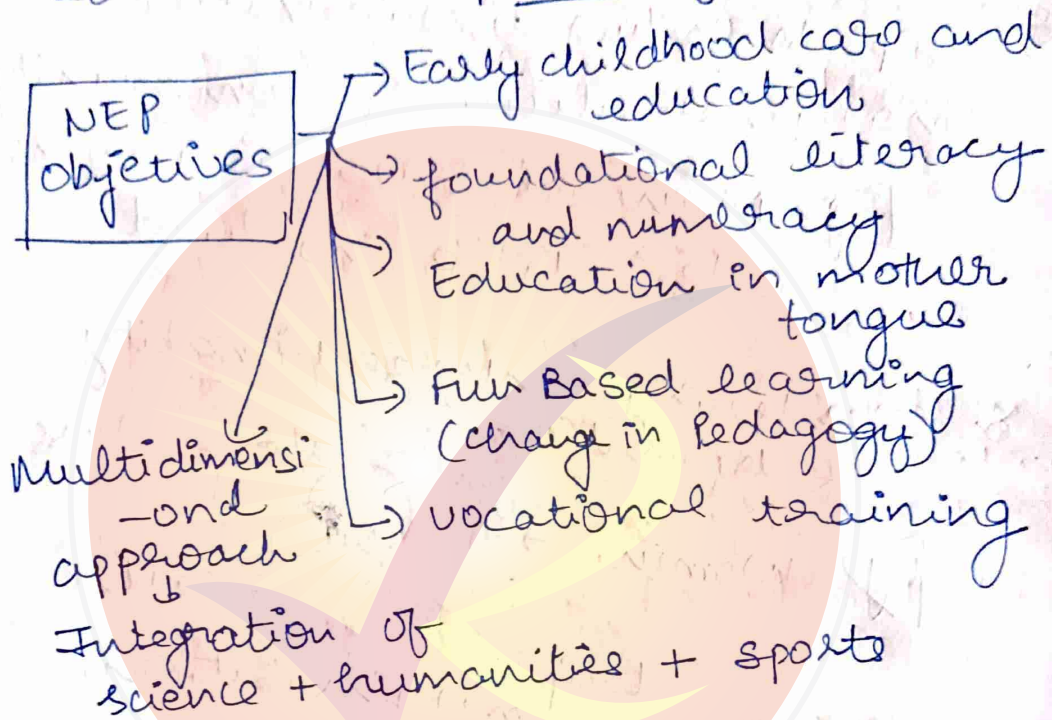 NEP
Objetives
Early childhood care and
education
foundational literacy
and numeracy
Education in mother
tongue
Fun Based learning
(change in Pedagogy)
vocational training
Multidimensi
-onal
approach
Integration of
science + humanities + sports